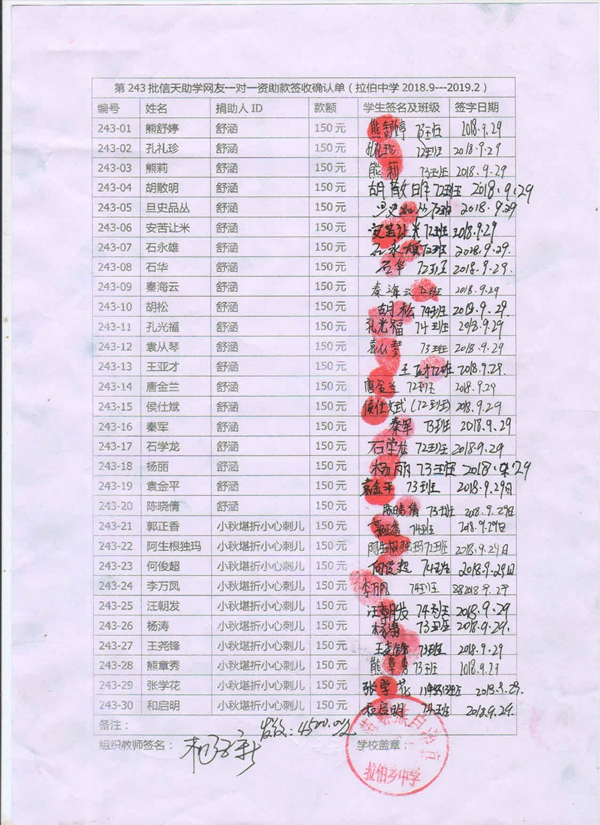 第243批信天助学网友一对一资助款签收确认单（拉伯中学2018.9---2019.2）
编号 姓名 捐助人ID 款额 学生签名及班级 签字日期
243-01 熊舒婷 舒涵 150元 熊舒婷 73班 2018.9.29
243-02 孔礼珍 舒涵 150元 孔礼珍 72班 2018.9.29
243-03 熊莉 舒涵 150元 熊莉 73班 2018.9.29
243-04 胡散明 舒涵 150元 胡散明 72班 2018.9.29
243-05 旦史品丛 舒涵 150元 2018.9.29
243-06 安苦让米 舒涵 150元 安苦让米 72班 2018.9.29
243-07 石永雄 舒涵 150元 石永雄 72班 2018.9.29.
243-08 石华 舒涵 150元 石华 72班 2018.9.29
243-09 秦海云 舒涵 150元 秦海云 2018.9.29
243-10 胡松 舒涵 150元 胡松 74班 2018.9.29
243-11 孔光福 舒涵 150元 孔光福 74班 2018.9.29
243-12 袁从琴 舒涵 150元 袁从琴 73班 2018.9.29
243-13 王亚才 舒涵 150元 王亚才 72班 2018.9.28.
243-14 唐金兰 舒涵 150元 唐金兰 72班 2018.9.29
243-15 侯仕斌 舒涵 150元 (72班) 2018.9.29
243-16 秦军 舒涵 150元 秦军 73班 2018.9.29
243-17 石学龙 舒涵 150元 石学龙 72班 2018.9.29
243-18 杨丽 舒涵 150元 杨丽 73班 2018.9.29
243-19 袁金平 舒涵 150元 袁金平 73班 2018.9.29日
243-20 陈晓倩 舒涵 150元 陈晓倩 73班 2018.9.29日
243-21 郭正香 小秋堪折小心刺儿 150元 郭正香 74班 2018.9.29日
243-22 阿生根独玛 小秋堪折小心刺儿 150元 阿生根独玛 72班 2018.9.24日
243-23 何俊超 小秋堪折小心刺儿 150元 何俊超 74班 2018.9.29日
243-24 李万凤 小秋堪折小心刺儿 150元 74班 2018.9.29
243-25 汪朝发 小秋堪折小心刺儿 150元 汪朝发 74班 2018.9.29
243-26 杨涛 小秋堪折小心刺儿 150元 杨涛 73班 2018.9.29.
243-27 王尧锋 小秋堪折小心刺儿 150元 王尧锋 73班 2018.9.29.
243-28 熊章秀 小秋堪折小心刺儿 150元 熊章秀 73班 2018.9.29
243-29 张学花 小秋堪折小心刺儿 150元 张学花 2018.9.29.
243-30 和启明 小秋堪折小心刺儿 150元 和启明 74班 2018.9.29.
备注： 4500.00元
组织教师签名： 学校盖章：
拉伯乡中学